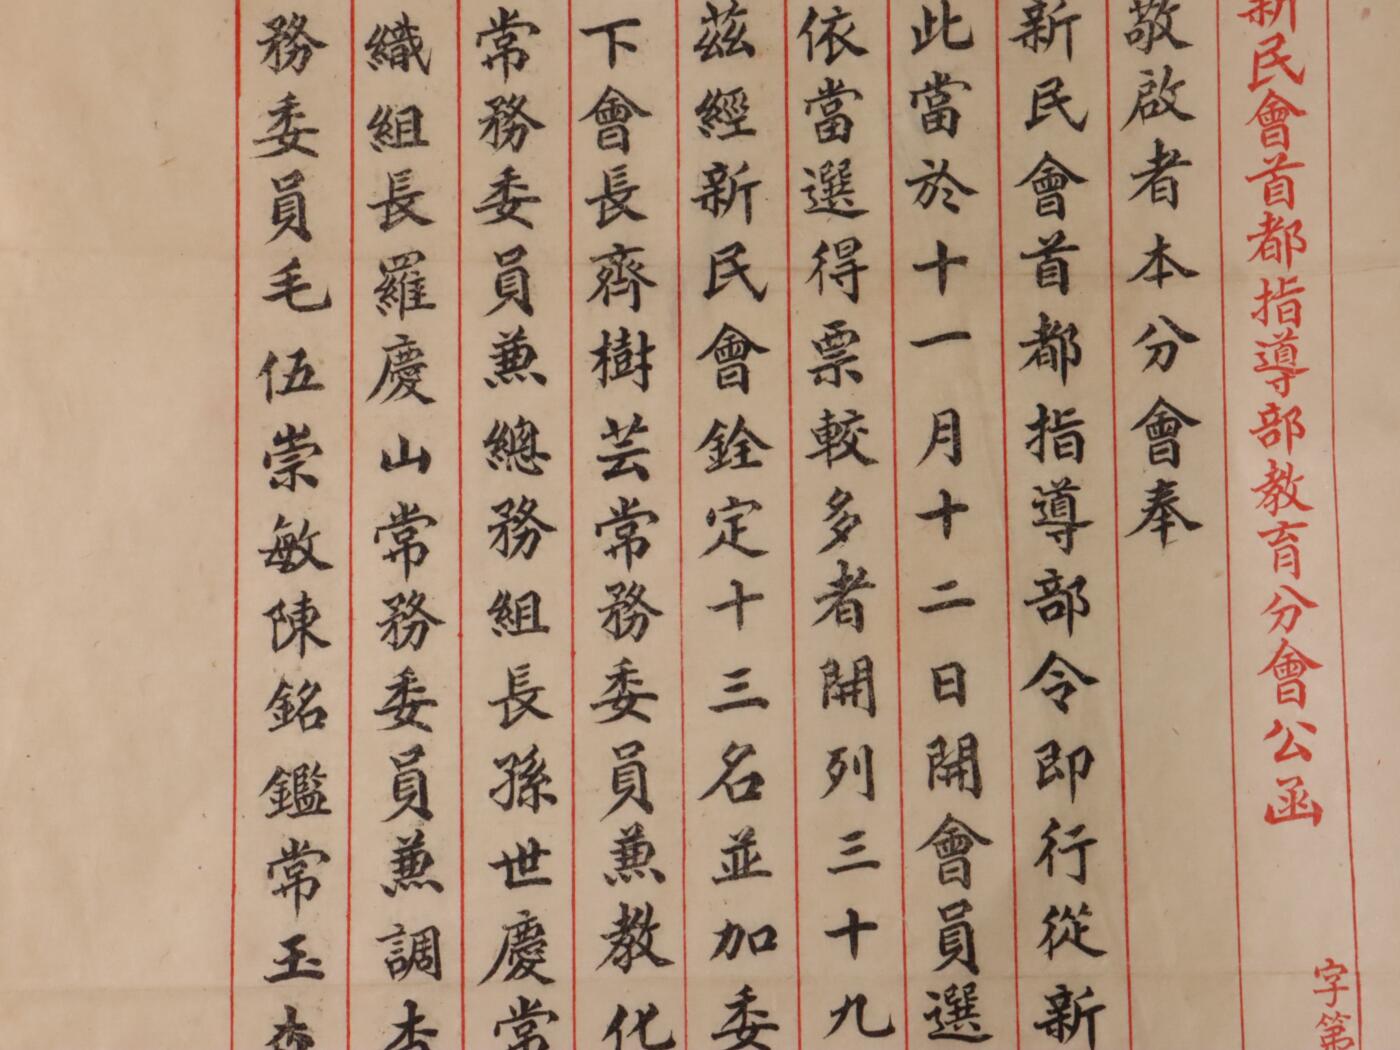 字第
新民會首都指導部教育分會公函
敬啟者本分會奉
新民會首都指導部令即行從新
此當於十一月十二日開會員選
依當選得票較多者開列三十九
茲經新民會銓定十三名並加委
下會長齊樹芸常務委員兼教化
常務委員兼總務組長孫世慶常
織組長羅慶山常務委員兼調查
務委員毛伍崇敏陳銘鑑常玉森